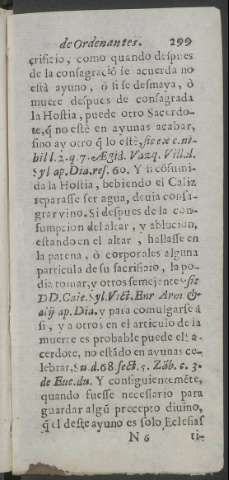 de Ordenantes. 299
crificio, como quando despues
de la consagraciõ se acuerda no
está ayuno, ò si se desmaya, ò
muere despues de consagrada
la Hostia, puede otro Sacerdo-
te, q̃ no estè en ayunas acabar,
sino ay otro q̃ lo estè, sic ex c. ni-
hil 1. 2. q. 7. Ægid. Vazq. Vill. d.
Syl ap. Dia. res. 60. Y si cõsumi-
da la Hostia, bebiendo el Caliz
reparasse ser agua, devia consa-
grar vino. Si despues de la con-
sumpcion del altar, y ablucion,
estando en el altar, hallasse en
la patena, ò corporales alguna
particula de su sacrificio, la po-
dia tomar, y otros semejantes sic
DD. Caie. Syl. Vict. Enr Arm &
alij ap. Dia. y para comulgarse á
si, y a otros en el articulo de la
muerte es probable puede el Sa-
cerdote, no estãdo en ayunas ce-
lebrar, Su. d. 68 sect. 5. Zãb. c. 3.
de Euc. du. Y consiguientemẽte,
quando fuesse necessario para
guardar algũ precepto divino,
q̃ el deste ayuno es solo Eclesias
N 6 ti-